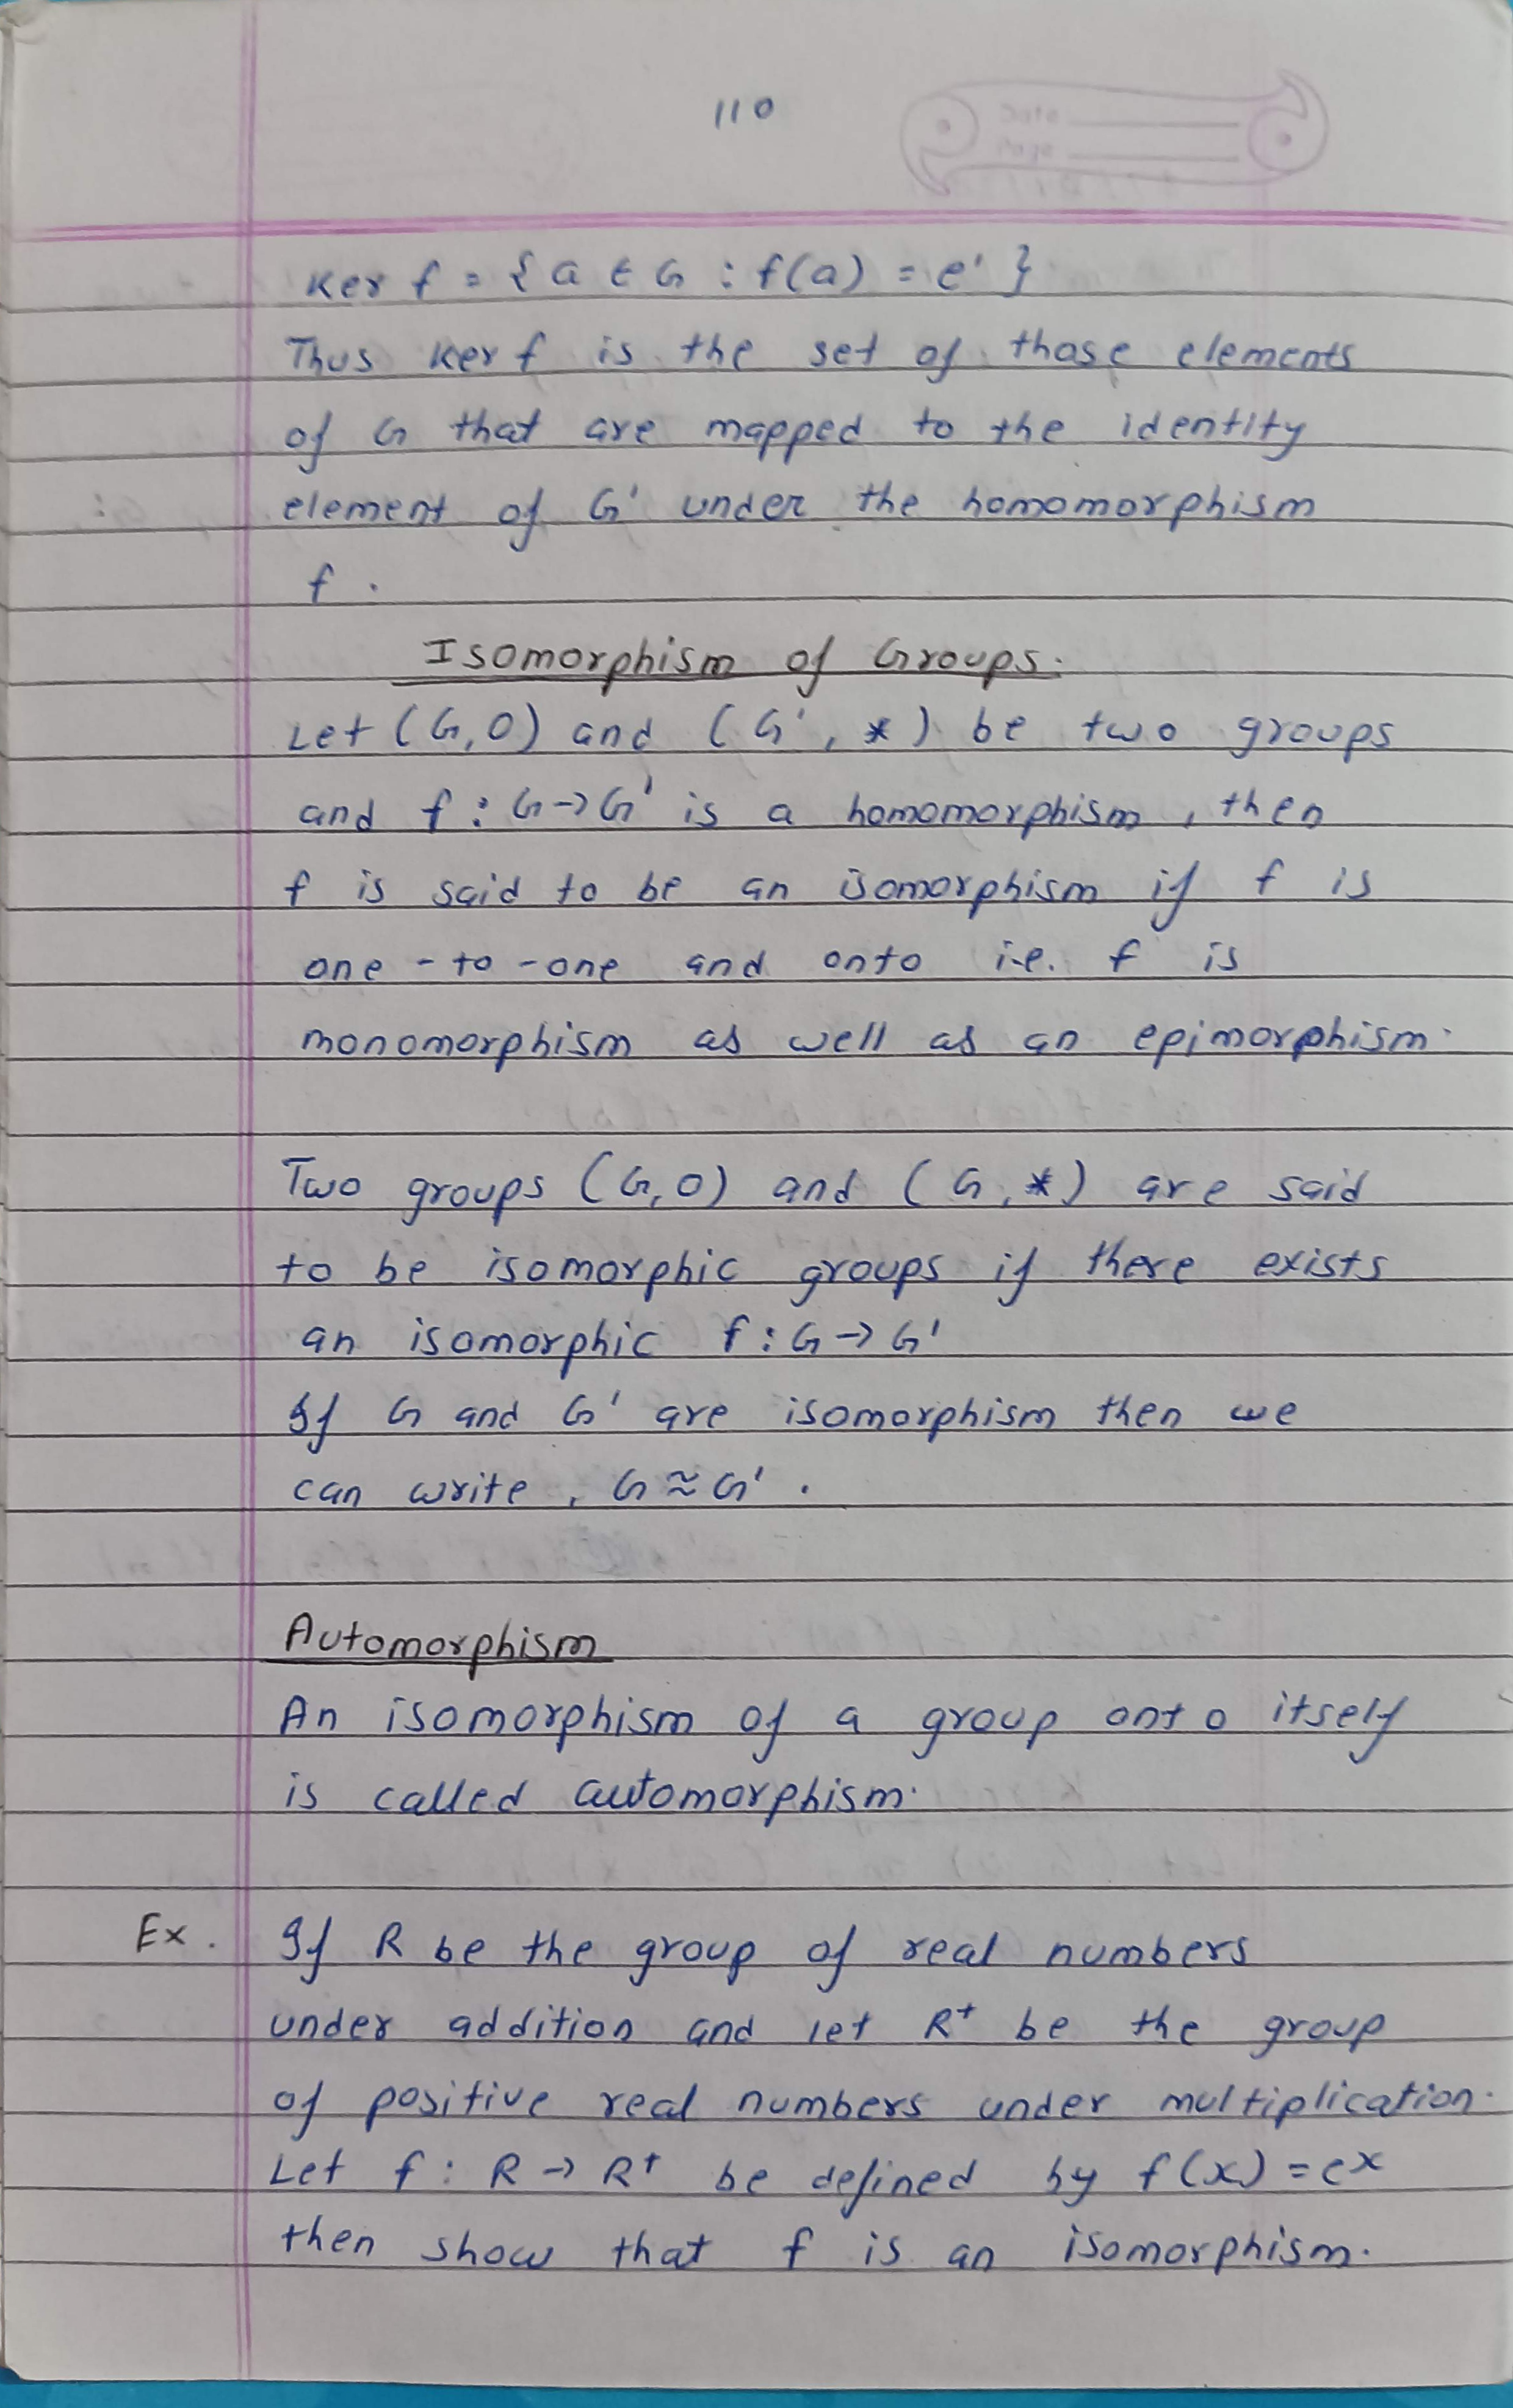 110
Ker f = { a ∈ G : f(a) = e' }
Thus Ker f is the set of those elements
of G that are mapped to the identity
element of G' under the homomorphism
f .
Isomorphism of Groups.
Let (G, O) and (G', *) be two groups
and f : G → G' is a homomorphism, then
f is said to be an isomorphism if f is
one - to - one and onto i.e. f is
monomorphism as well as an epimorphism.
Two groups (G, O) and (G, *) are said
to be isomorphic groups if there exists
an isomorphic f : G → G'
If G and G' are isomorphism then we
can write, G ≈ G' .
Automorphism
An isomorphism of a group onto itself
is called automorphism.
Ex. If R be the group of real numbers
under addition and let R⁺ be the group
of positive real numbers under multiplication.
Let f : R → R⁺ be defined by f(x) = eˣ
then show that f is an isomorphism.